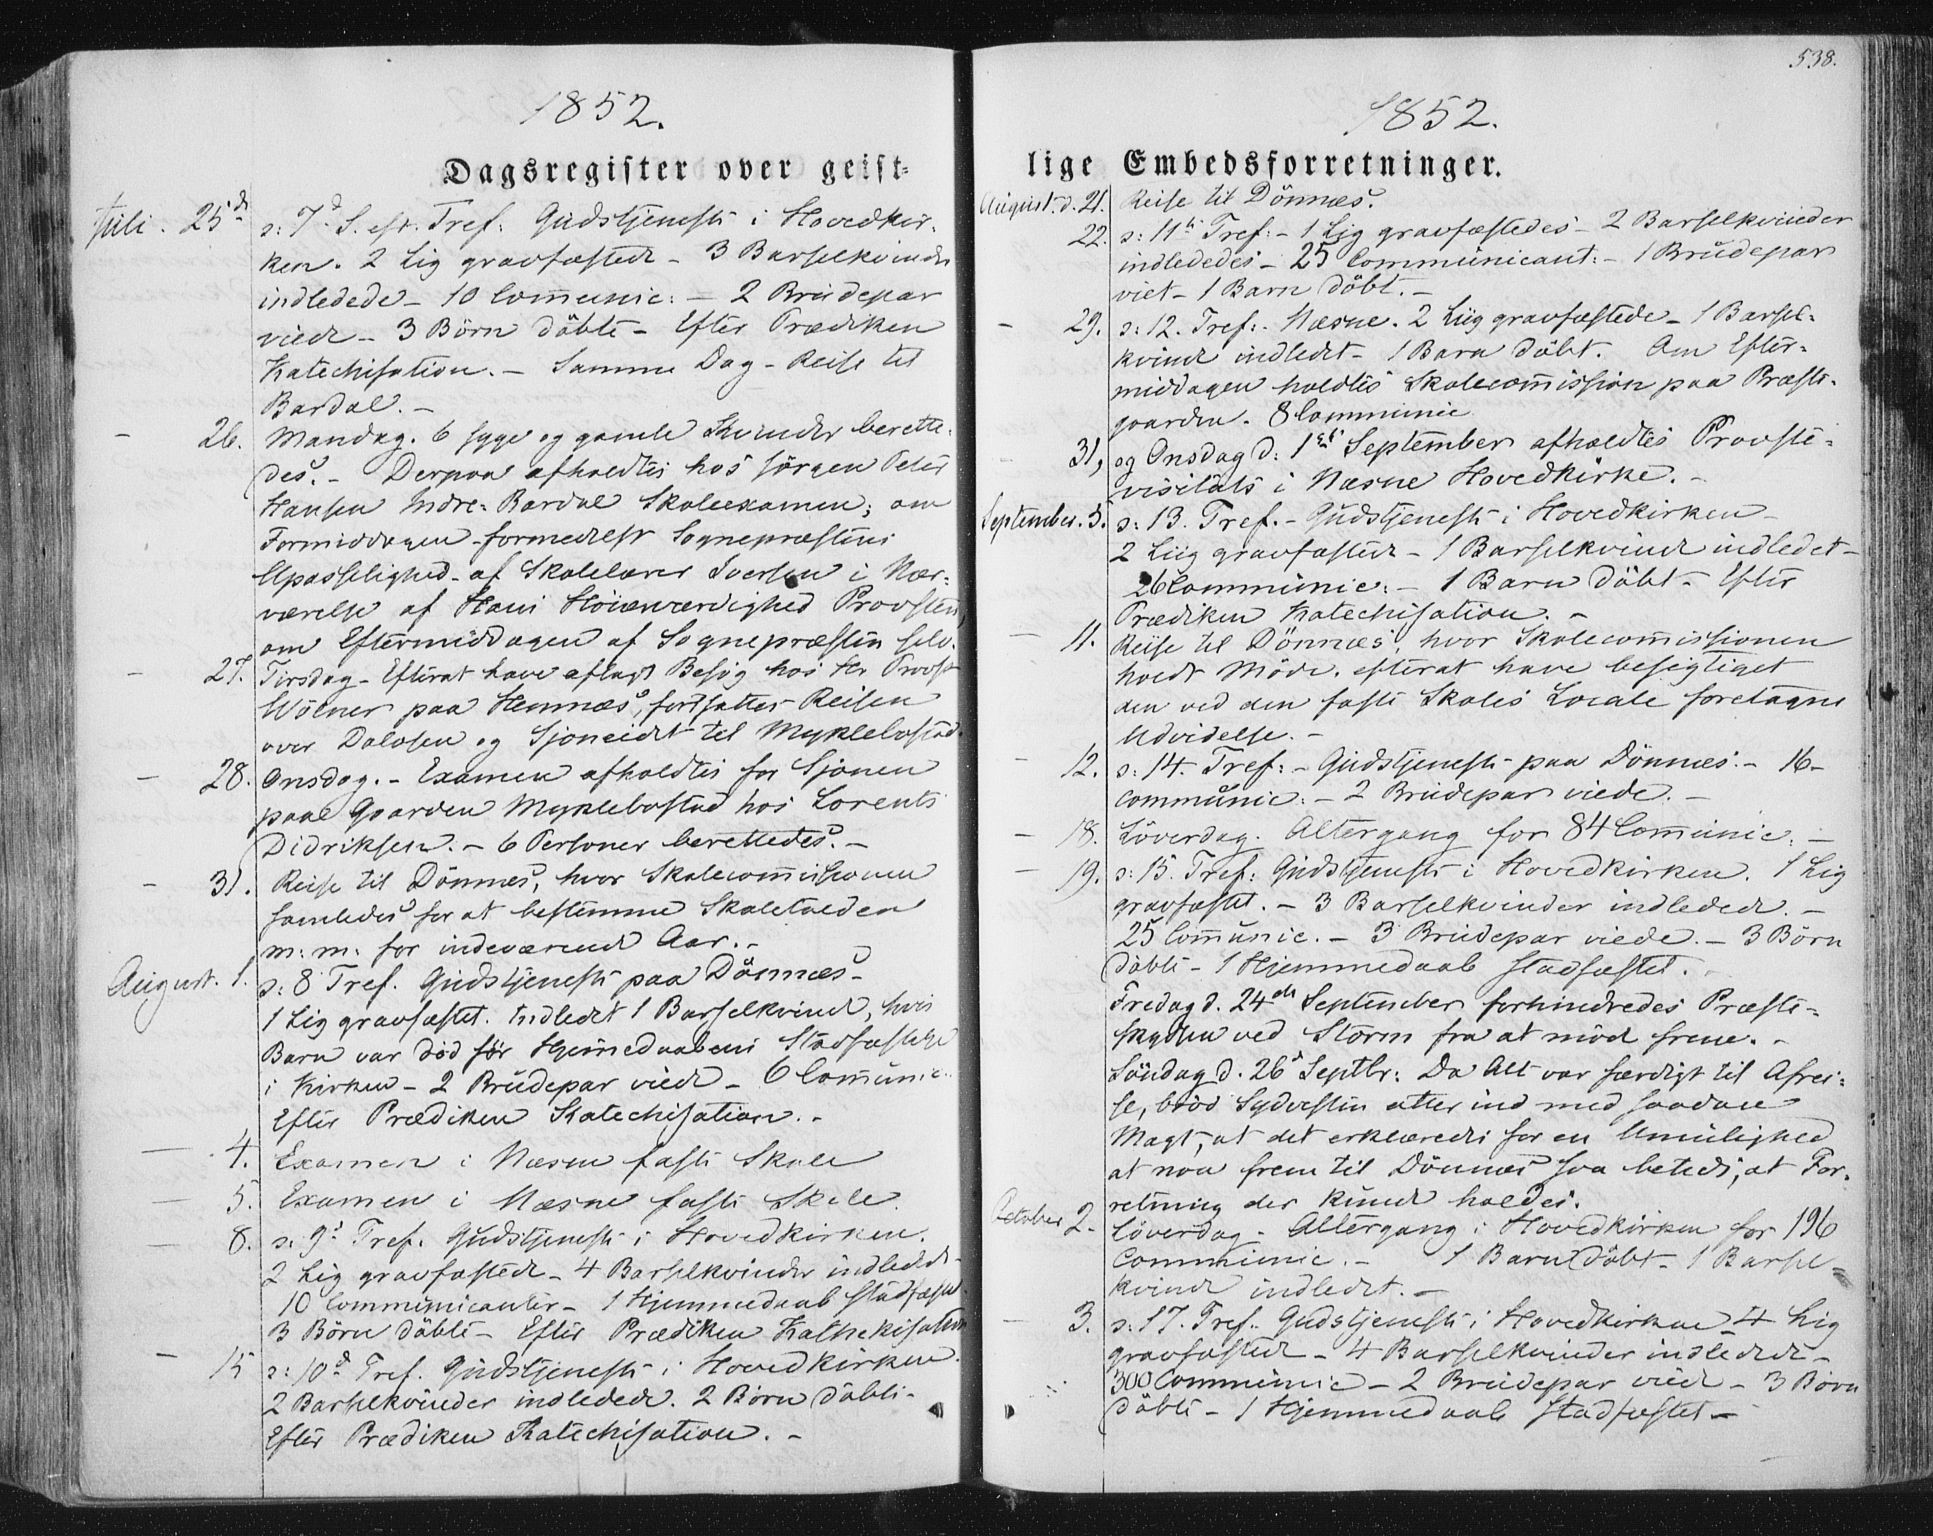 1852.
Dagsregister over geist-
Juli. 25d s: 7d S. eft. Tref: Gudstjeneste i Hovedkir-
ken. 2 Lig gravfæstede - 3 Barselkvinder
indledede - 10 Com̄unic: - 2 Brudepar
viede - 3 Börn döbte - Efter Prædiken
Katechisation. - Samme Dag - Reise til
Bardal. -
- 26. Mandag. 6 syge og gamle Kvinder berette-
des. - Derpaa afholdtes hos Jörgen Peter
Hansen Indre-Bardal Skoleexamen; om
Formiddagen formedelst Sognepræstens
Upasselighed - af Skolelærer Iversen i Nær-
værelse af Hans Höiærværdighed Provsten,
om Eftermiddagen af Sognepræsten selv.
- 27. Tirsdag - Efterat have aflagt Besög hos Hr Provst
Wölner paa Hemnæs, fortsattes Reisen
over Dalosen og Sjoneidet til Myklebostad.
- 28. Onsdag. - Examen afholdtes for Sjonen
paa Gaarden Myklebostad hos Lorents
Didriksen. - 6 Personer berettedes. -
- 31. Reise til Dönnæs, hvor Skolecom̄issionen
samledes for at bestemme Skoletolden
m: m: for indeværende Aar. -
August. 1. s: 8 Tref. Gudstjeneste paa Dönnæs -
1 Lig gravfæstet. Indledet 1 Barselkvinde, hvis
Barn var död för Hjem̄edaabens Stadfæstelse
i Kirken - 2 Brudepar viede - 6 Com̄unic.
Efter Prædiken Katechisation. -
- 4. Examen i Næsne faste Skole
- 5. Examen i Næsne faste Skole.
- 8. s: 9d Tref. Gudstjeneste i Hovedkirken.
2 Lig gravfæstede - 4 Barselkvinder indledede -
10 Communicanter - 1 Hjemmedaab stadfæstet
3 Börn döbte - Efter Prædiken Kathekisation
- 15 s: 10d Tref. Gudstjeneste i Hovedkirken.
2 Barselkvinder indledede. 2 Börn döbte -
Efter Prædiken Katechisation. -
538.
1852.
lige Embedsforretninger.
August. d. 21. Reise til Dönnæs.
22. s: 11te Tref: - 1 Lig gravfæstedes - 2 Barselkvinder
indlededes - 25 Communicant: - 1 Brudepar
viet - 1 Barn döbt. -
- 29. s: 12. Tref: - Næsne. 2 Liig gravfæstede - 1 Barsel-
kvinde indledet - 1 Barn döbt. Om Efter-
middagen holdtes Skolecom̄ission paa Præste-
gaarden. 8 Communic
31, og Onsdag d: 1ste September afholdtes Provste-
visitats i Næsne Hovedkirke. -
September. 5. s: 13. Tref. - Gudstjeneste i Hovedkirken -
2 Liig gravfæstede - 1 Barselkvinde indledet -
26 Communic: - 1 Barn döbt - Efter
Prædiken Katechisation. -
- 11. Reise til Dönnæs, hvor Skolecom̄issionen
holdt Möde, efterat have besigtiget
den ved den faste Skoles Locale foretagne
Udvidelse. -
- 12. s: 14. Tref: - Gudstjeneste paa Dönnæs - 16 -
communic: - 2 Brudepar viede. -
- 18. Löverdag. Altergang for 84 Com̄unic. -
- 19. s: 15. Tref: Gudstjeneste i Hovedkirken. 1 Lig
gravfæstet. - 3 Barselkvinder indledede. -
25 Com̄unic. - 3 Brudepar viede. - 3 Börn
döbte - 1 Hjemmedaab stadfæstet. -
Fredag d. 24de September forhindredes Præste-
skydsen ved Storm fra at möde frem. -
Söndag d. 26d Septbr: Da Alt var færdigt til Afrei-
se, bröd Sydvesten atter ind med saadan
Magt, at det erklæredes for en Umulighed
at naa frem til Dönnæs saa betids, at For-
retning der kunde holdes.
October 2. Löverdag - Altergang i Hovedkirken for 196
Communic. - 1 Barn döbt - 1 Barsel-
kvinde indledet. -
- 3. s: 17. Tref. Gudstjeneste i Hovedkirken 4 Lig
gravfæstede - 4 Barselkvinder indledede -
300 Communic - 2 Brudepar viede - 3 Börn
döbte - 1 Hjemmedaab stadfæstet -